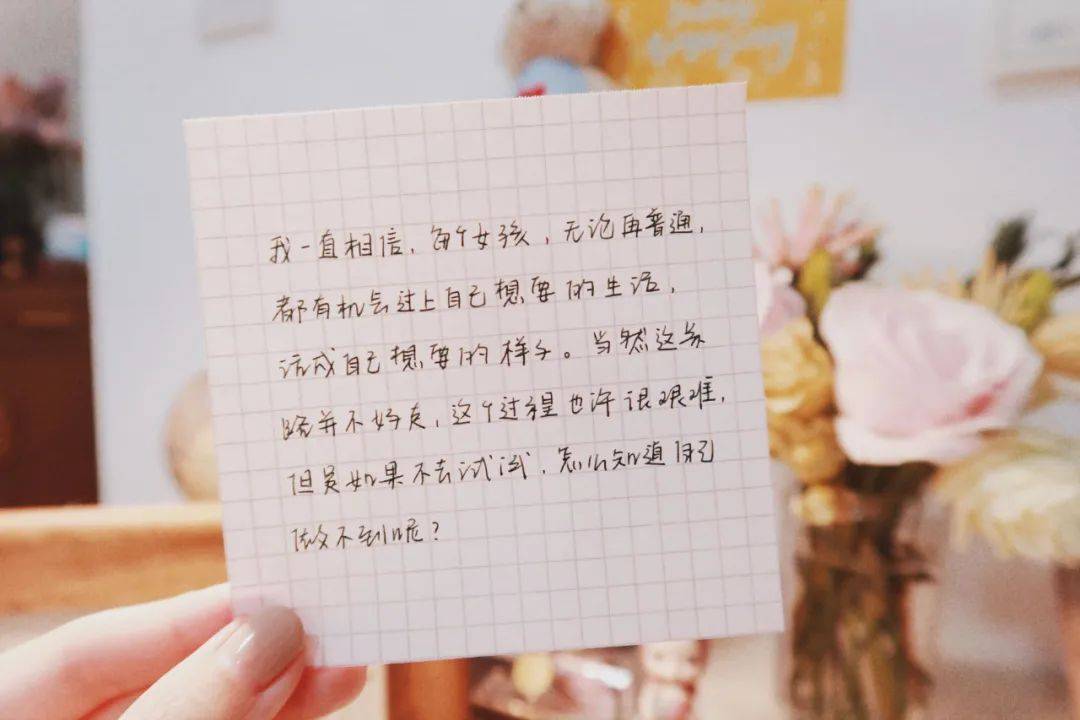 我一直相信，每个女孩，无论再普通，
都有机会过上自己想要的生活，
活成自己想要的样子。当然这条
路并不好走，这个过程也许很艰难，
但是如果不去试试，怎么知道自己
做不到呢？